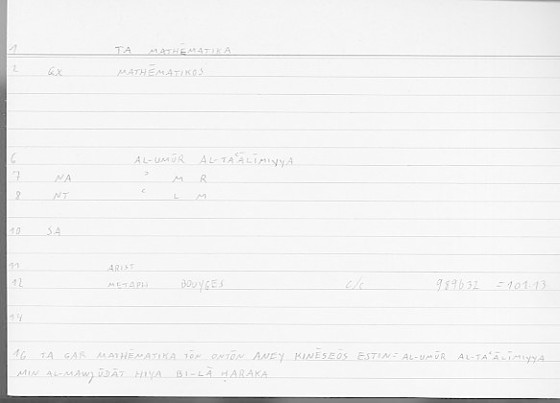 1 TA MATHĒMATIKA
2 GX MATHĒMATIKOS
6 AL-UMŪR AL-TAʿĀLĪMIYYA
7 NA ʾ M R
8 NT ʿ L M
10 SA
11 ARIST
12 METAPH BOUYGES C/C 989b32 =101.13
14
16 TA GAR MATHĒMATIKA TŌN ONTŌN ANEY KINĒSEŌS ESTIN = AL-UMŪR AL-TAʿĀLĪMIYYA
MIN AL-MAWǦŪDĀT HIYA BI-LĀ ḤARAKA